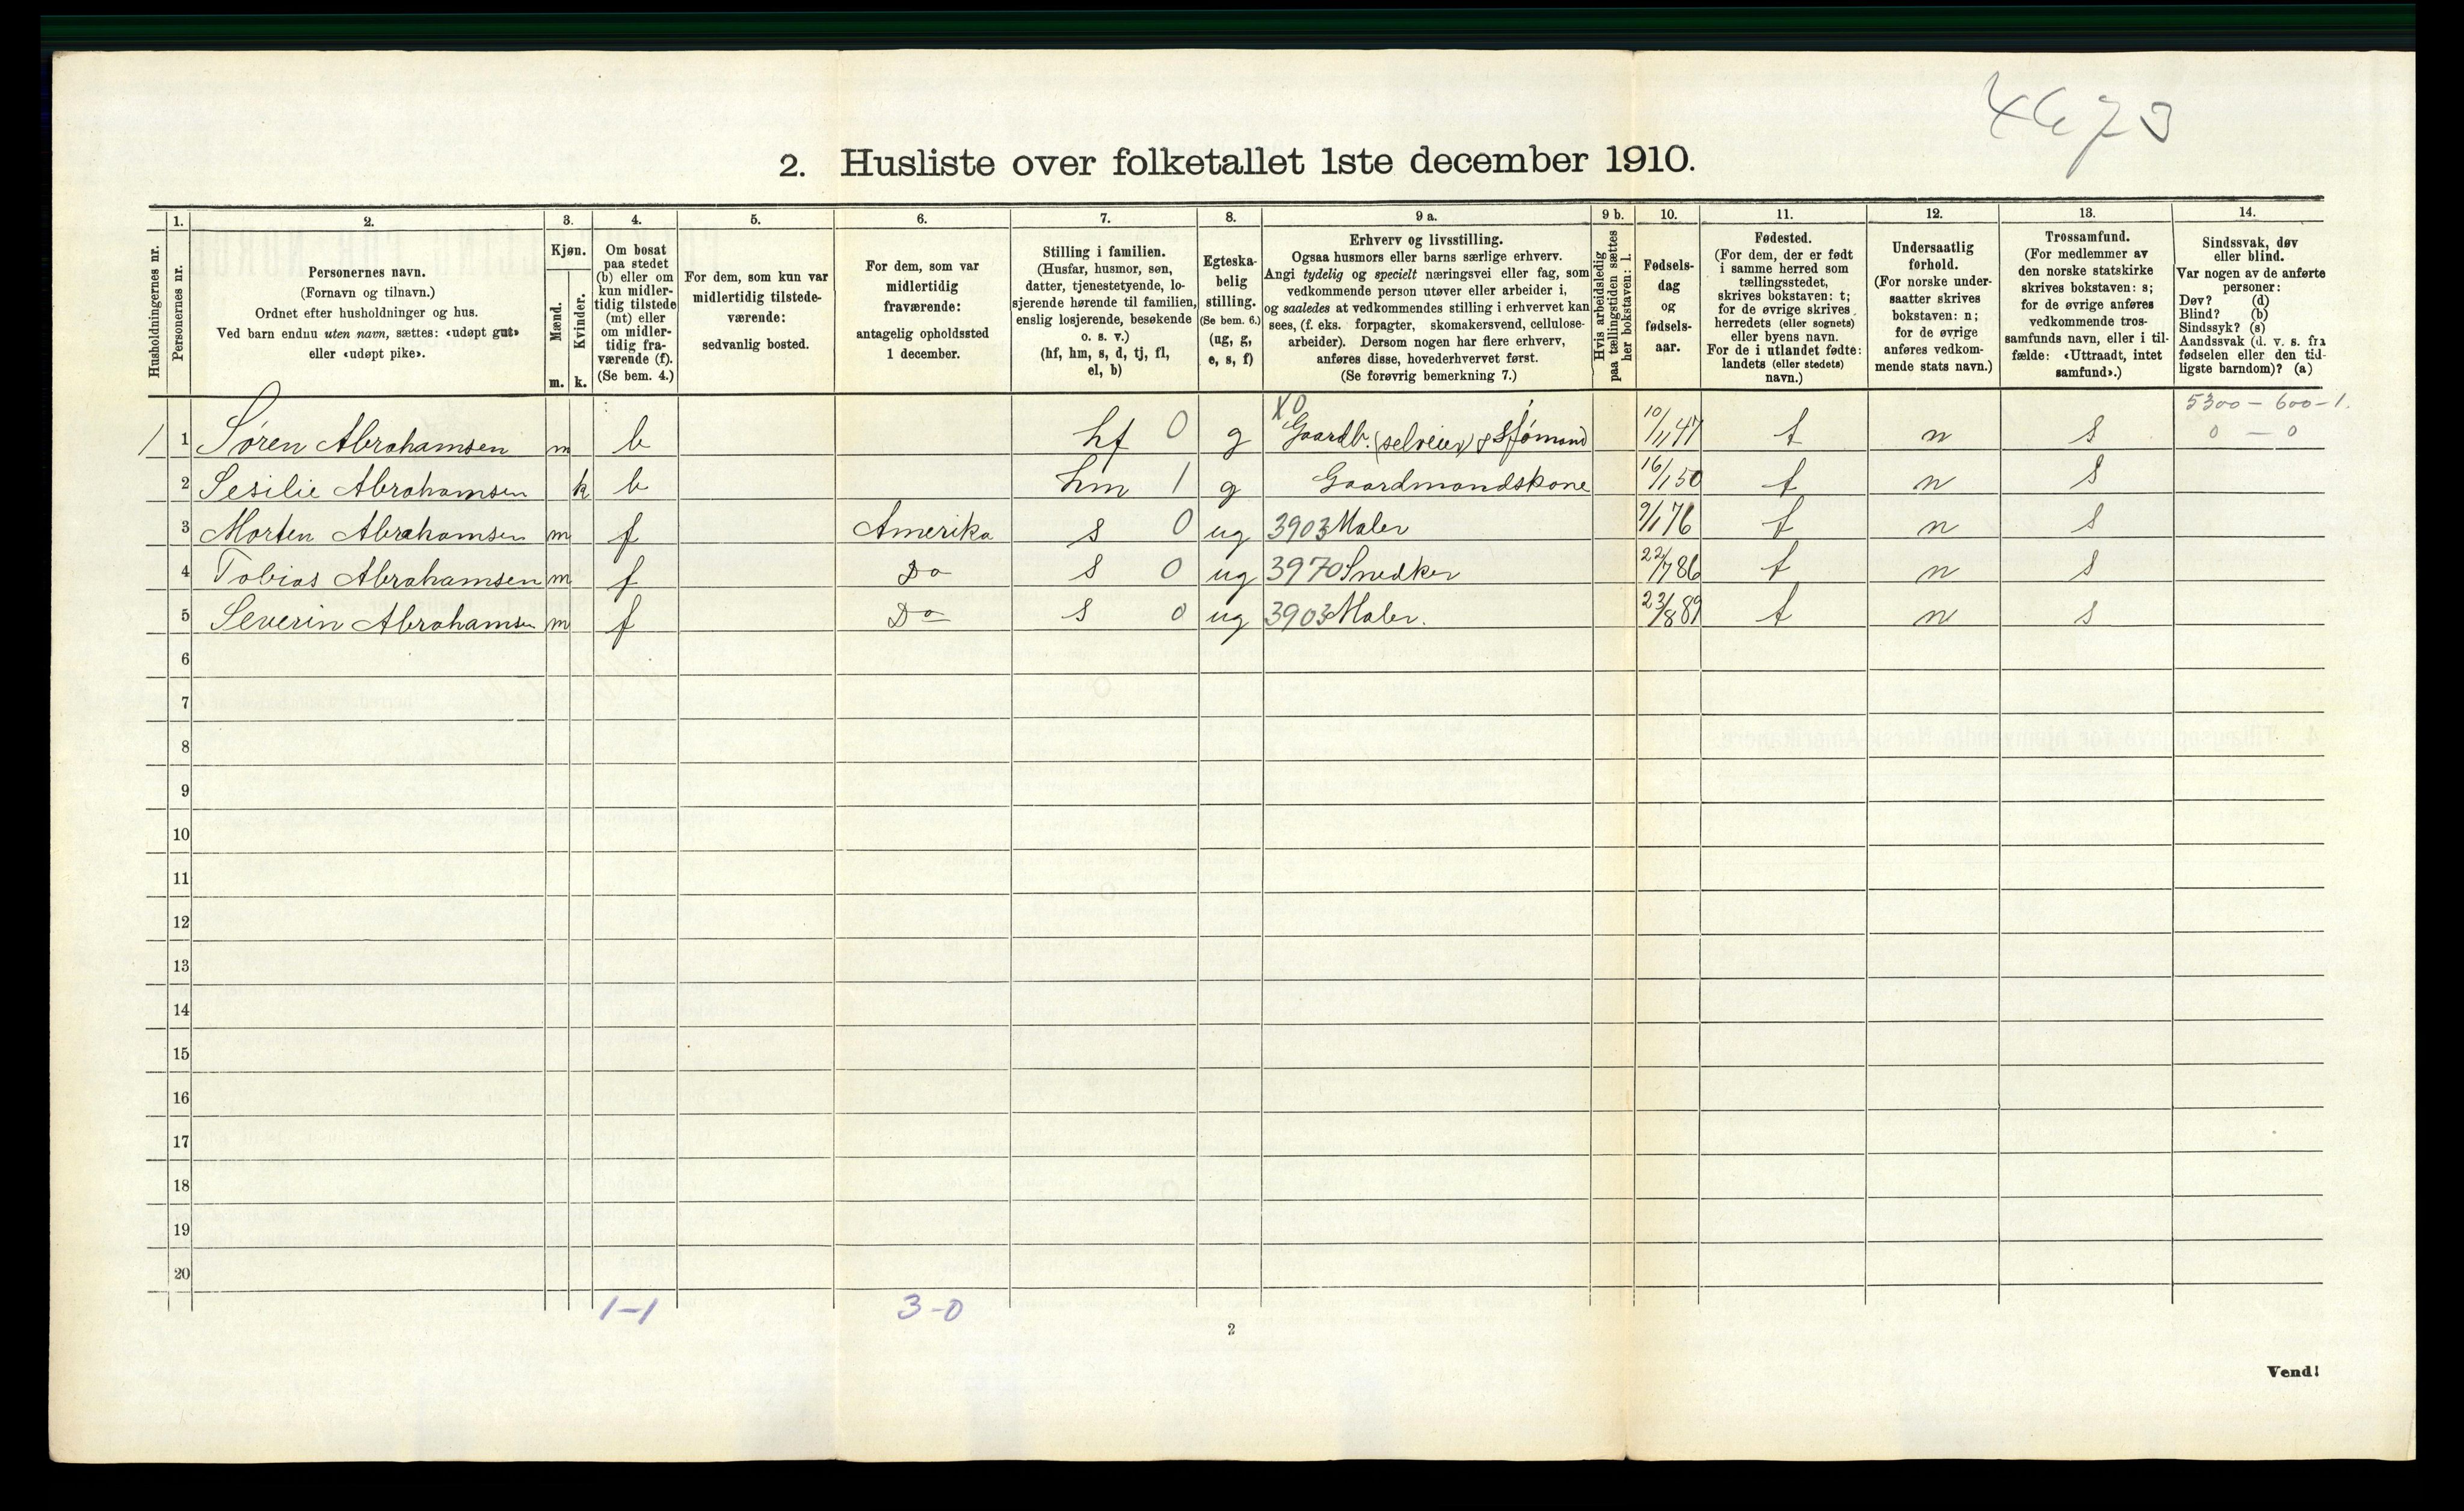 4673
2. Husliste over folketallet 1ste december 1910.
Husholdningernes nr.
1.
Personernes nr.
2.
Personernes navn.
(Fornavn og tilnavn.)
Ordnet efter husholdninger og hus.
Ved barn endnu uten navn, sættes: «udøpt gut»
eller «udøpt pike».
3.
Kjøn.
Mænd.
Kvinder.
m. k.
4.
Om bosat
paa stedet
(b) eller om
kun midler-
tidig tilstede
(mt) eller
om midler-
tidig fra-
værende (f).
(Se bem. 4.)
5.
For dem, som kun var
midlertidig tilstede-
værende:
sedvanlig bosted.
6.
For dem, som var
midlertidig
fraværende:
antagelig opholdssted
1 december.
7.
Stilling i familien.
(Husfar, husmor, søn,
datter, tjenestetyende, lo-
sjerende hørende til familien,
enslig losjerende, besøkende
o. s. v.)
(hf, hm, s, d, tj, fl,
el, b)
8.
Egteska-
belig
stilling.
(Se bem. 6.)
(ug, g,
e, s, f)
9 a.
Erhverv og livsstilling.
Ogsaa husmors eller barns særlige erhverv.
Angi tydelig og specielt næringsvei eller fag, som
vedkommende person utøver eller arbeider i,
og saaledes at vedkommendes stilling i erhvervet kan
sees, (f. eks. forpagter, skomakersvend, cellulose-
arbeider). Dersom nogen har flere erhverv,
anføres disse, hovederhvervet først.
(Se forøvrig bemerkning 7.)
9 b.
Hvis arbeidsledig
paa tællingstiden sættes
her bokstaven: l.
10.
Fødsels-
dag
og
fødsels-
aar.
11.
Fødested.
(For dem, der er født
i samme herred som
tællingsstedet,
skrives bokstaven: t;
for de øvrige skrives
herredets (eller sognets)
eller byens navn.
For de i utlandet fødte:
landets (eller stedets)
navn.)
12.
Undersaatlig
forhold.
(For norske under-
saatter skrives
bokstaven: n;
for de øvrige
anføres vedkom-
mende stats navn.)
13.
Trossamfund.
(For medlemmer av
den norske statskirke
skrives bokstaven: s;
for de øvrige anføres
vedkommende tros-
samfunds navn, eller i til-
fælde: «Uttraadt, intet
samfund».)
14.
Sindssvak, døv
eller blind.
Var nogen av de anførte
personer:
Døv? (d)
Blind? (b)
Sindssyk? (s)
Aandssvak (d. v. s. fra
fødselen eller den tid-
ligste barndom)? (a)
X0 5300 - 600 - 1.
1 1 Søren Abrahamsen m b hf 0 g Gaardb. (selveier) & Sjømand 10/11 47 t n s 0 - 0
2 Sesilie Abrahamsen k b hm 1 g Gaardmandskone 16/1 50 t n s
3 Morten Abrahamsen m f Amerika s 0 ug 3903 Maler 9/1 76 t n s
4 Tobias Abrahamsen m f Do s 0 ug 3970 Snedker 22/7 86 t n s
5 Severin Abrahamsen m f Do s 0 ug 3903 Maler. 23/8 89 t n s
6
7
8
9
10
11
12
13
14
15
16
17
18
19
20
1-1 3-0
2
Vend!